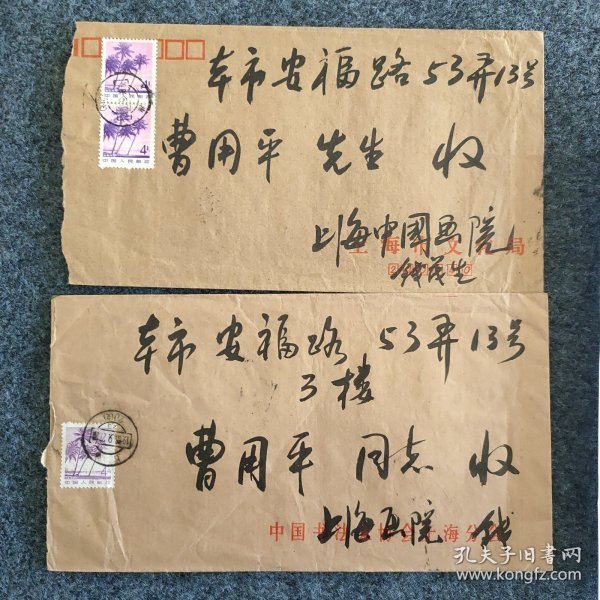 本市安福路53弄13号
曹用平 先生 收
上海中国画院
上海市文化局
钱茂生
4分
中国人民邮政
4分
中国人民邮政
本市安福路53弄13号
3楼
曹用平 同志 收
上海画院 钱
中国书法家协会上海分会
中国人民邮政
孔夫子旧书网
www.kongfz.com